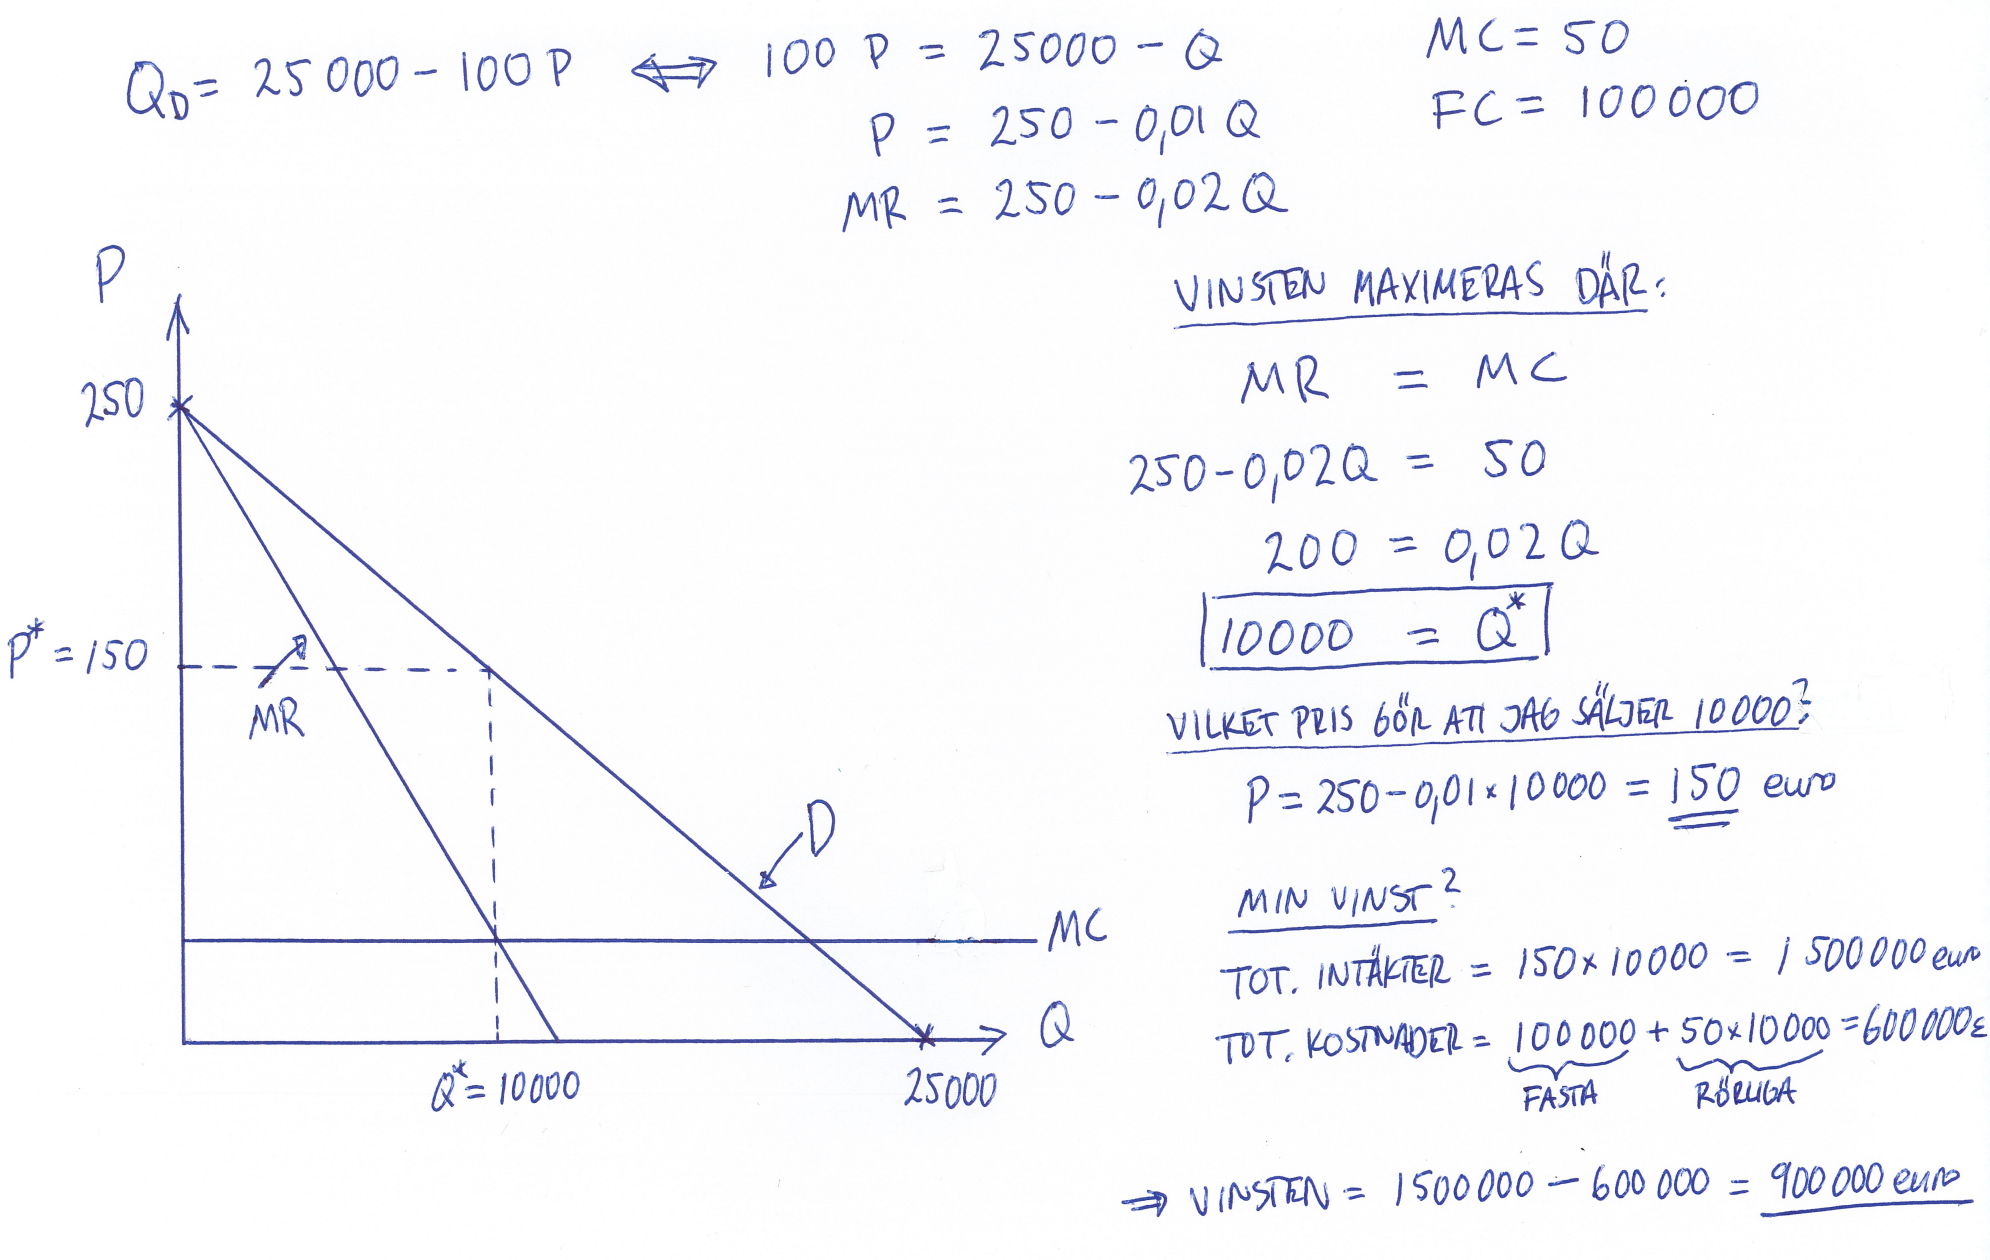 Q_D = 25 000 - 100 P ⟺ 100 P = 25000 - Q
P = 250 - 0,01 Q
MR = 250 - 0,02 Q
MC = 50
FC = 100 000
P
250
P* = 150
MR
D
MC
Q
Q* = 10000
25000
VINSTEN MAXIMERAS DÄR:
MR = MC
250 - 0,02Q = 50
200 = 0,02 Q
10000 = Q*
VILKET PRIS GÖR ATT JAG SÄLJER 10000?
P = 250 - 0,01 × 10000 = 150 euro
MIN VINST?
TOT. INTÄKTER = 150 × 10000 = 1 500 000 euro
TOT. KOSTNADER = 100 000 + 50 × 10000 = 600 000 €
FASTA RÖRLIGA
⇒ VINSTEN = 1500 000 - 600 000 = 900 000 euro